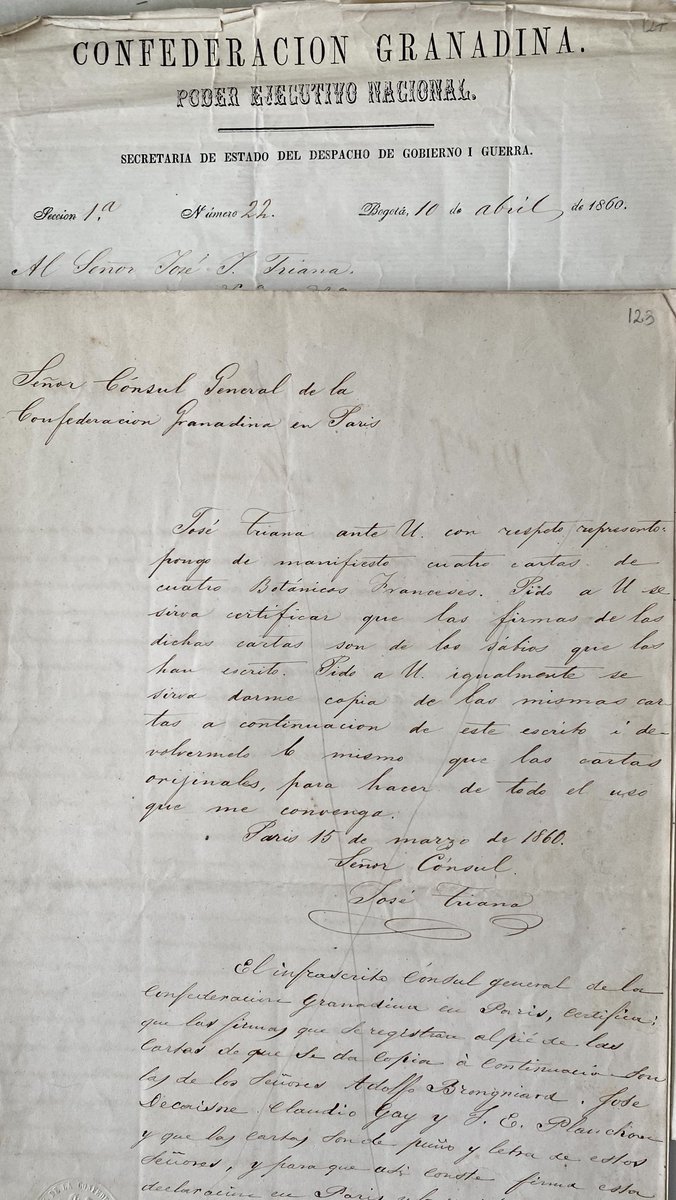 CONFEDERACION GRANADINA.
PODER EJECUTIVO NACIONAL.
SECRETARIA DE ESTADO DEL DESPACHO DE GOBIERNO I GUERRA.
Seccion 1.ª Número 22. Bogotá, 10 de abril de 1860.
Al Señor José J. Triana.
123
Señor Cónsul General de la
Confederacion Granadina en Paris
José Triana ante U. con respeto represento:
pongo de manifiesto cuatro cartas de
cuatro Botánicos Franceses. Pido a U se
sirva certificar que las firmas de las
dichas cartas son de los sábios que las
han escrito. Pido a U. igualmente se
sirva darme copia de las mismas car-
tas a continuacion de este escrito i de-
volvermelo lo mismo que las cartas
orijinales, para hacer de todo el uso
que me convenga.
Paris 15 de marzo de 1860.
Señor Cónsul.
José Triana
El infrascrito Cónsul general de la
Confederacion Granadina en Paris, certifica:
que las firmas que se registran al pié de las
cartas de que se da copia à continuacio son
las de los Señores Adolfo Brongniard, José
Decaisne, Claudio Gay y J. E. Planchon
y que las cartas son de puño y letra de estos
Señores, y para que asi conste firma esta
declaracion en Paris